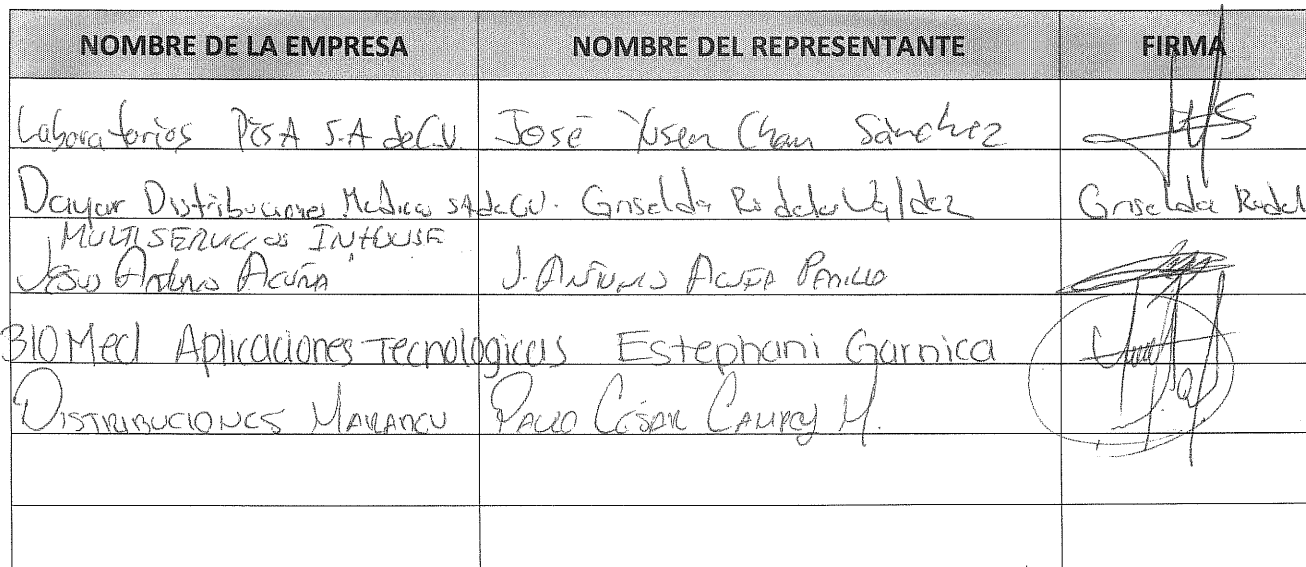 NOMBRE DE LA EMPRESA NOMBRE DEL REPRESENTANTE FIRMA
Laboratorios PiSA S.A de C.V. José Yusen Chan Sánchez
Dayar Distribuciones Medicas SA de CV. Griselda Rodela Valdez Griselda Rodel
MULTISERVICIOS INHOUSE
Jesus Antonio Acuña J. Antonio Acuña
BIOMed Aplicaciones Tecnológicas Estephani Garnica
Distribuciones Paulo César Campoy M.